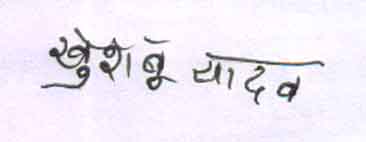 खुशबू यादव